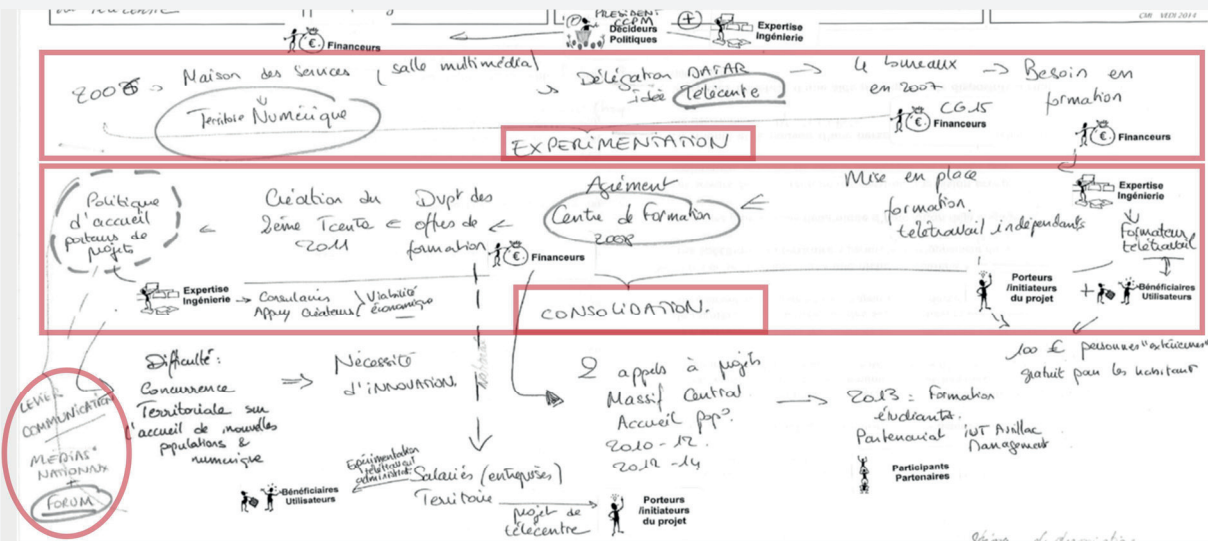 PRESIDENT
CCPM
Décideurs
Politiques
+
Expertise
Ingénierie
€
Financeurs
Maison des Services (salle multimédia)
Territoire Numérique
Délégation DATAR
idée Télécentre
4 bureaux
en 2007
CG15
€
Financeurs
Besoin en
formation
€
Financeurs
EXPERIMENTATION
Politique
d'accueil
porteurs de
projets
Création du
2ème Tcentre
2011
Dvpt des
offres de
formation
€
Financeurs
Agrément
Centre de Formation
2008
Mise en place
formation.
télétravail indépendants
Expertise
Ingénierie
Formateur
télétravail
Expertise
Ingénierie
Consulaires
Appuy créateurs
Viabilité
économique
CONSOLIDATION.
Porteurs
/initiateurs
du projet
+
Bénéficiaires
Utilisateurs
100 € personnes "extérieures"
gratuit pour les habitants
LEVIER
COMMUNICATION
MEDIAS
NATIONAUX
+
FORUM
Difficulté :
Concurrence
Territoriale sur
l'accueil de nouvelles
populations &
numérique
Nécessité
d'INNOVATION.
2 appels à projets
Massif Central
Accueil pop°.
2010-12.
2012-14
2013 : Formation
étudiants.
Partenariat IUT Aurillac
Management
Participants
Partenaires
Expérimentation
télétravail
administrat°
Bénéficiaires
Utilisateurs
Salariés (entreprises)
Territoire
projet de
télécentre
Porteurs
/initiateurs
du projet